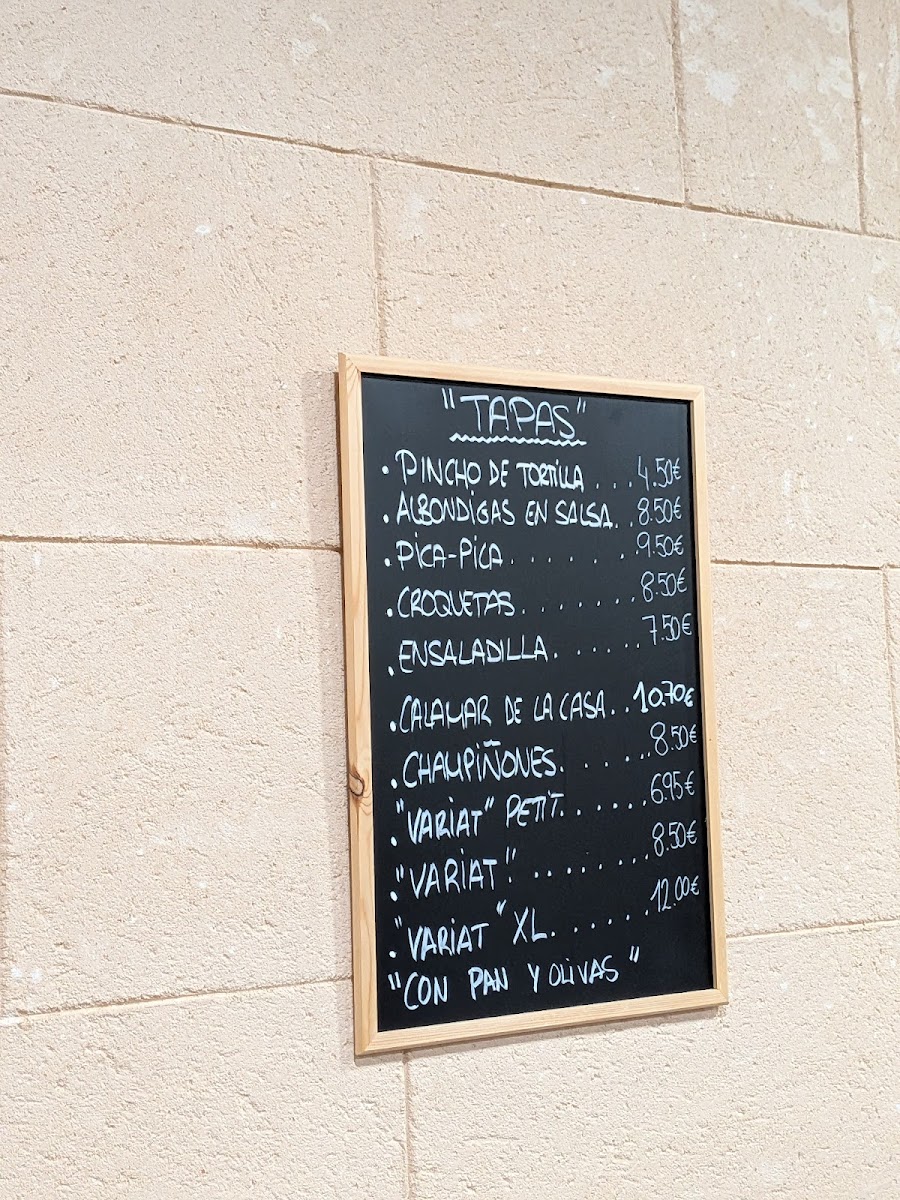 "TAPAS"
· PINCHO DE TORTILLA . . . 4.50€
. ALBONDIGAS EN SALSA . . 8.50€
. PICA-PICA . . . . . . . 9.50€
. CROQUETAS . . . . . . . 8.50€
. ENSALADILLA . . . . . . 7.50€
. CALAMAR DE LA CASA . . 10.70€
. CHAMPIÑONES . . . . . . 8.50€
. "VARIAT" PETIT . . . . . . 6.95€
. "VARIAT" . . . . . . . . 8.50€
. "VARIAT" XL . . . . . . 12.00€
"CON PAN Y OLIVAS"